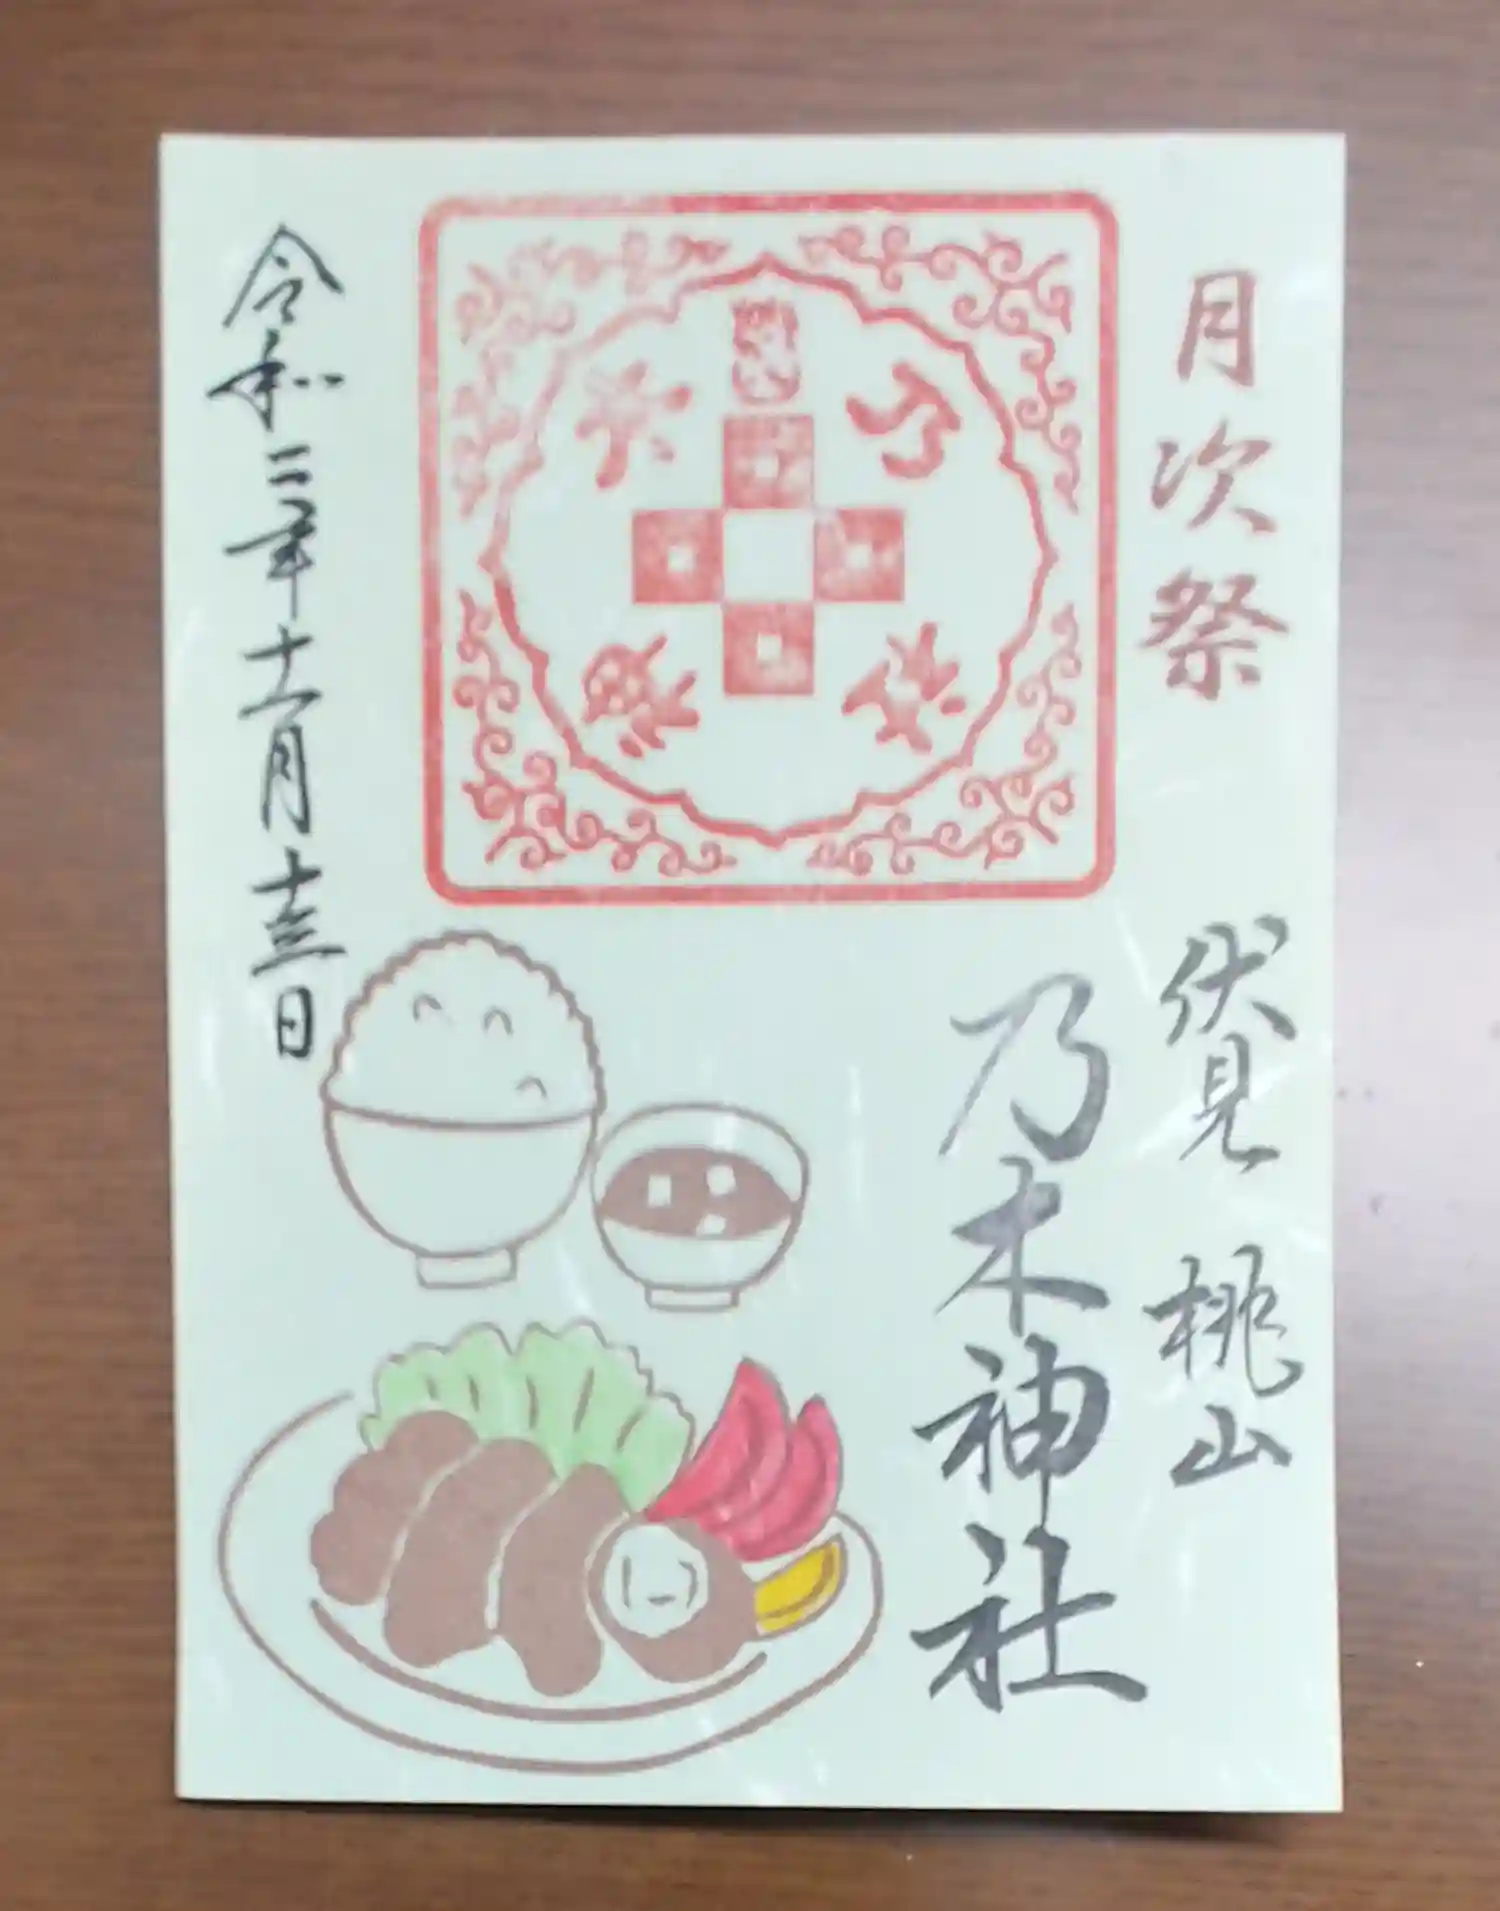 月次祭
伏見 桃山
乃木神社
令和二年十一月十三日